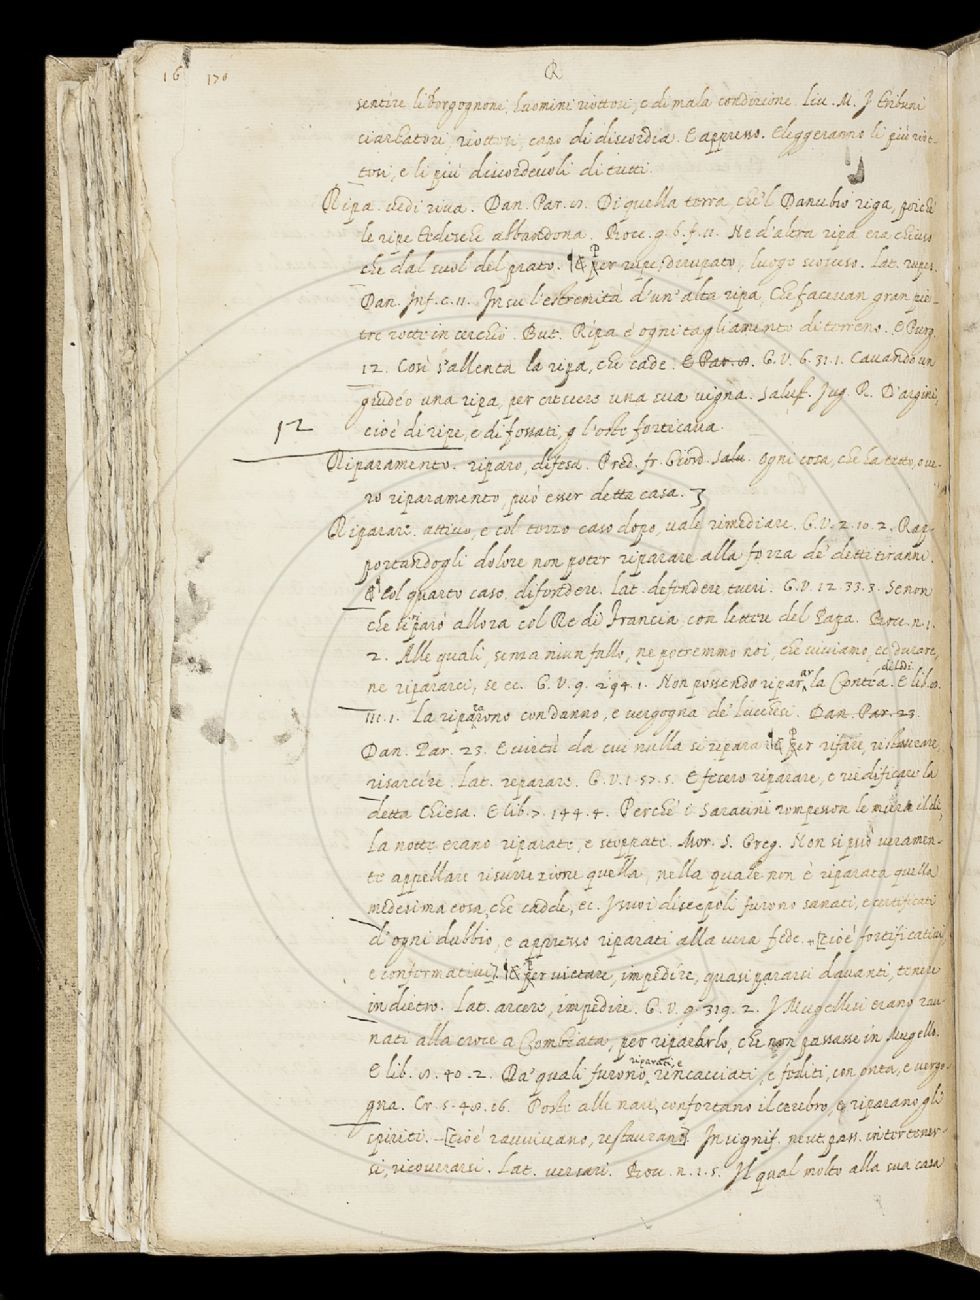 16 170
R
sentire li borgognoni, huomini riottosi, e di mala condizione. Liu. M. I Tribuni
ciarlatori, riottosi, capo di discordia. E appresso. Eleggeranno li più riot-
tosi, e li più discordeuoli di tutti.
Ripa. uedi riua. Dan. Par. 8. Di quella terra, che'l Danubio riga, poiche
le ripe tedesche abbandona. Bocc. g. 6. f. 11. Ne d'altra ripa era chiuso
che dal suol del prato. ¶ E per rupe, dirupato, luogo scosceso. Lat. rupes.
Dan. Inf. c. 11. In su l'estremità d'un'alta ripa, Che faceuan gran pie-
tre rotte in cerchio. But. Ripa è ogni tagliamento di terreno. E Purg.
12. Così s'allenta la ripa, che cade. E Par. 8. G. V. 6. 31. 1. Cauando un
giudeo una ripa, per crescere una sua uigna. Salust. Jug. R. D'argini,
12
cioè di ripe, e di fossati, l'oste forticaua.
Riparamento. riparo, difesa. Pred. fr. Giord. Salu. Ogni cosa, che ha tetto, oue-
ro riparamento, può esser detta casa.
Riparare. attiuo, e col terzo caso dopo, uale rimediare. G. V. 2. 10. 2. Rap-
portandogli dolore non poter riparare alla forza de' detti tiranni.
E col quarto caso difendere. Lat. defendere, tueri. G. V. 12. 33. 3. Se non
che riparò allora col Re di Francia con lettere del Papa. Bocc. n. 1.
2. Alle quali, senza niun fallo, ne potremmo noi, che uiuiamo, ec. durare,
del Di.
ne ripararci, se ec. G. V. 9. 294. 1. Non possendo riparar la Contra. E lib. 8.
111. 1. La ripararono con danno, e vergogna de' Lucchesi. Dan. Par. 23
Dan. Par. 23. E uirtù da cui nulla si ripara. ¶ E per rifare, ristaurare,
risarcire. Lat. reparare. G. V. 1. 57. 5. E fecero riparare, e ridificare la
detta Chiesa. E lib. 7. 144. 4. Perchè i Saracini rompesson le mura il dì,
la notte erano riparate, e stoppate. Mor. S. Greg. Non si può ueramen-
te appellare risurrezione quella, nella quale non è riparata quella
medesima cosa, che cadde, ec. I suoi discepoli furono sanati, e certificati
d'ogni dubbio, e appresso riparati alla uera fede. [cioè fortificatiui
e conformatiui] ¶ E per uietare, impedire, quasi pararsi dauanti, tenere
indietro. Lat. arcere, impedire. G. V. 9. 319. 2. I Mugellesi erano rau-
nati alla croce a Combiata, per ripararlo, che non passasse in Mugello.
riparati, e
E lib. 8. 40. 2. Da' quali furono, rincacciati, e fediti, con onta, e uergo-
gna. Cr. 5. 48. 16. Poste alle nari, confortano il cerebro, e riparano gli
spiriti. [cioè rauuiuano, restaurano]. In signif. neut. pass. intertener-
si, ricouerarsi. Lat. uersari. Bocc. n. 2. 5. Il qual molto alla sua casa